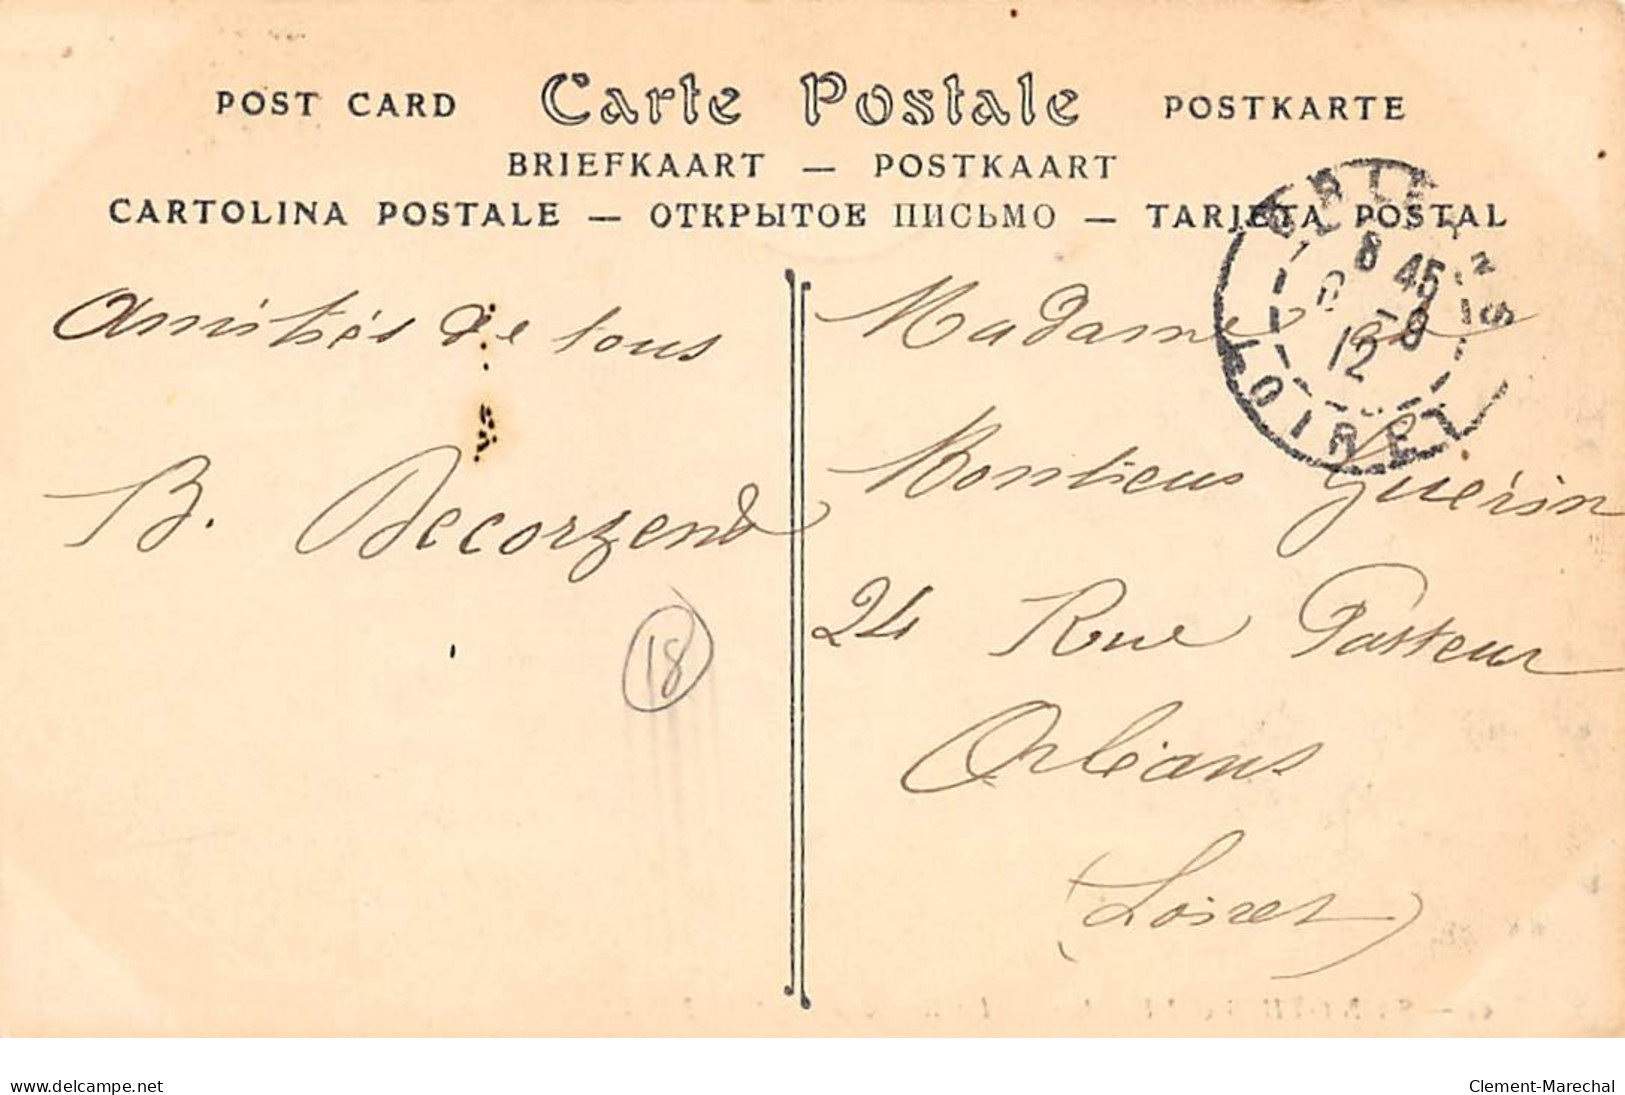 POST CARD Carte Postale POSTKARTE
BRIEFKAART — POSTKAART
CARTOLINA POSTALE — ОТКРЫТОЕ ПИСЬМО — TARJETA POSTAL
Amitiés de tous
B. Decorzend
18
Madame et
Monsieur Guérin
24 Rue Pasteur
Orléans
(Loiret)
8 45
12
LOIRET
www.delcampe.net
Clement-Marechal